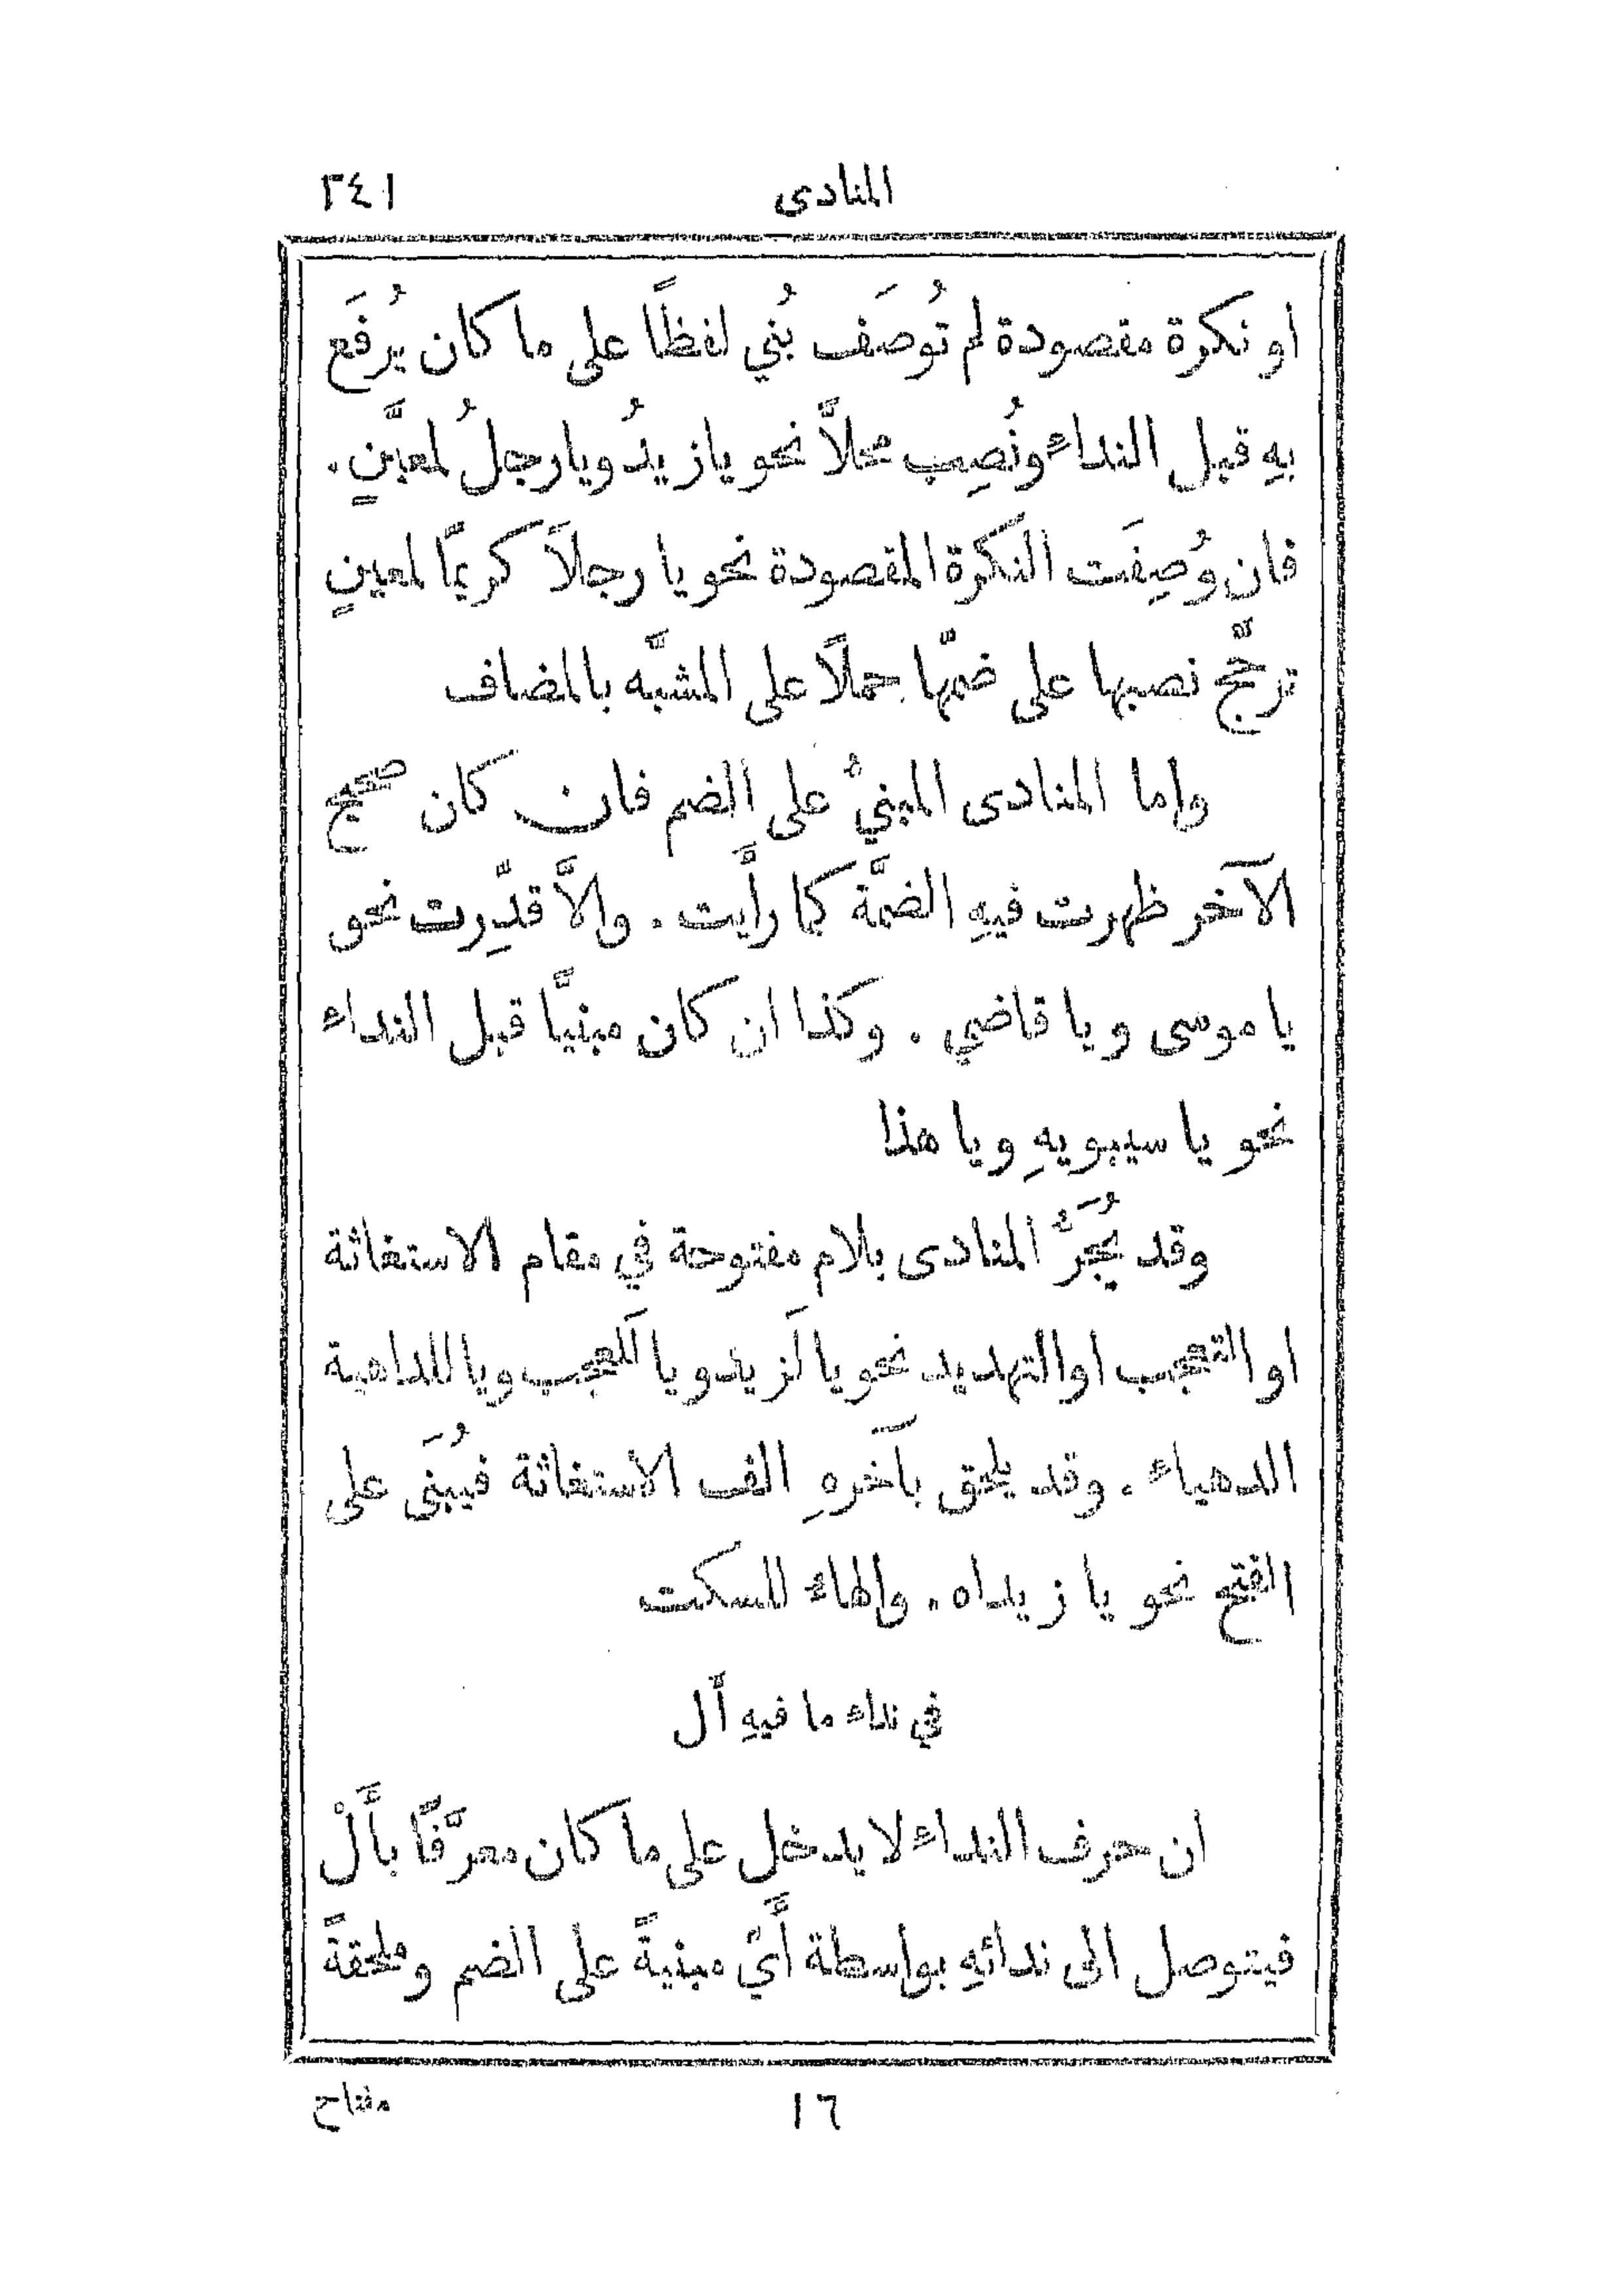 المنادى ٢٤١
او نكرة مقصودة لم تُوصَف بُني لفظًا على ما كان يُرفَع
بهِ قبل النداء ونُصِب محلاًّ نحو يا زيدُ ويا رجلُ لمعيَّنٍ .
فان وُصِفَت النكرة المقصودة نحو يا رجلاً كريمًا لمعينٍ
ترجَّح نصبها على ضمّها حملاً على المشبَّه بالمضاف
واما المنادى المبنيُّ على الضم فان كان صحيح
الآخر ظهرت فيهِ الضمَّة كما رأَيت . والاَّ قدِّرت نحو
يا موسى ويا قاضي . وكذا ان كان مبنيًّا قبل النداء
نحو يا سيبويهِ ويا هذا
وقد يُجَرُّ المنادى بلام مفتوحة في مقام الاستغاثة
او التعجب او التهديد نحو يا لَزيد ويا لَلعجب ويا للداهية
الدهياء . وقد يلحق بآخرهِ الف الاستغاثة فيُبنَى على
الفتح نحو يا زيداه . والهاء للسكت
في نداء ما فيهِ أَل
ان حرف النداء لا يدخل على ما كان معرَّفًا بأَلْ
فيتوصل الى ندائهِ بواسطة أَيّ مبنيةً على الضم وملحقةً
١٦ مفتاح